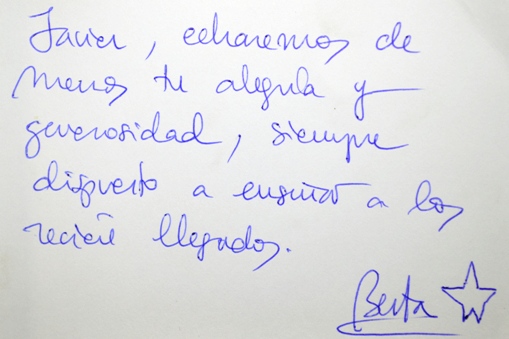 Javier, echaremos de
menos tu alegría y
generosidad, siempre
dispuesto a enseñar a los
recién llegados.
Berta